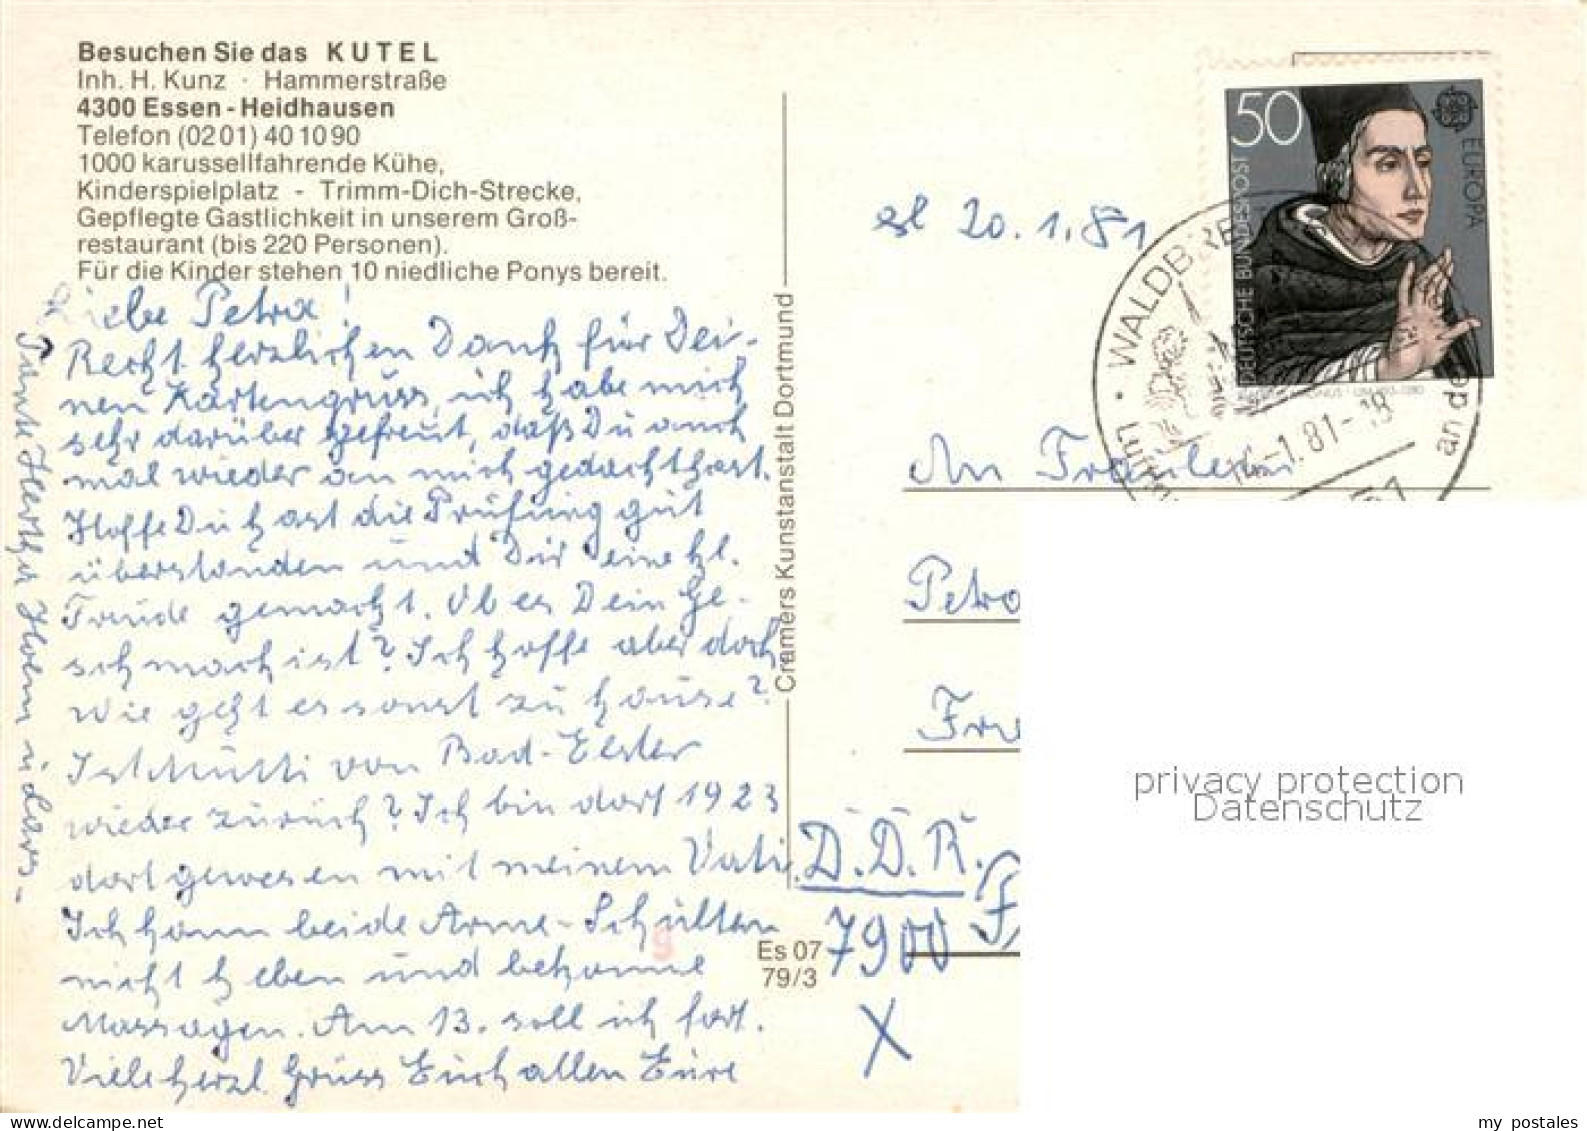 Besuchen Sie das KUTEL
Inh. H. Kunz · Hammerstraße
4300 Essen-Heidhausen
Telefon (0201) 40 10 90
1000 karussellfahrende Kühe,
Kinderspielplatz - Trimm-Dich-Strecke,
Gepflegte Gastlichkeit in unserem Groß-
restaurant (bis 220 Personen).
Für die Kinder stehen 10 niedliche Ponys bereit.
Liebe Petra!
Recht herzlichen Dank für Dei-
nen Kartengruss, ich habe mich
sehr darüber gefreut, daß Du auch
mal wieder an mich gedacht hast.
Hoffe Du hast die Prüfung gut
überstanden und Dir eine kl.
Freude gemacht. Ob es Dein Ge-
schmack ist? Ich hoffe aber doch.
Wie geht es sonst zu hause?
Ist Mutti von Bad-Elster
wieder zurück? Ich bin dort 1923
dort gewesen mit meinem Vati.
Ich kann beide Arme-Schultern
nicht heben und bekomme
Massagen. Am 13. soll ich fort.
Viele herzl. Grüss Euch allen Eure
Tante Hertha Holm u. Lars.
Cramers Kunstanstalt Dortmund
Es 07
79/3
20.1.81
50
DEUTSCHE BUNDESPOST
EUROPA
WALDBRE
-1.81-18
an de
An Fräulein
Petra
D.D.R.
7900
X
privacy protection
Datenschutz
my postales